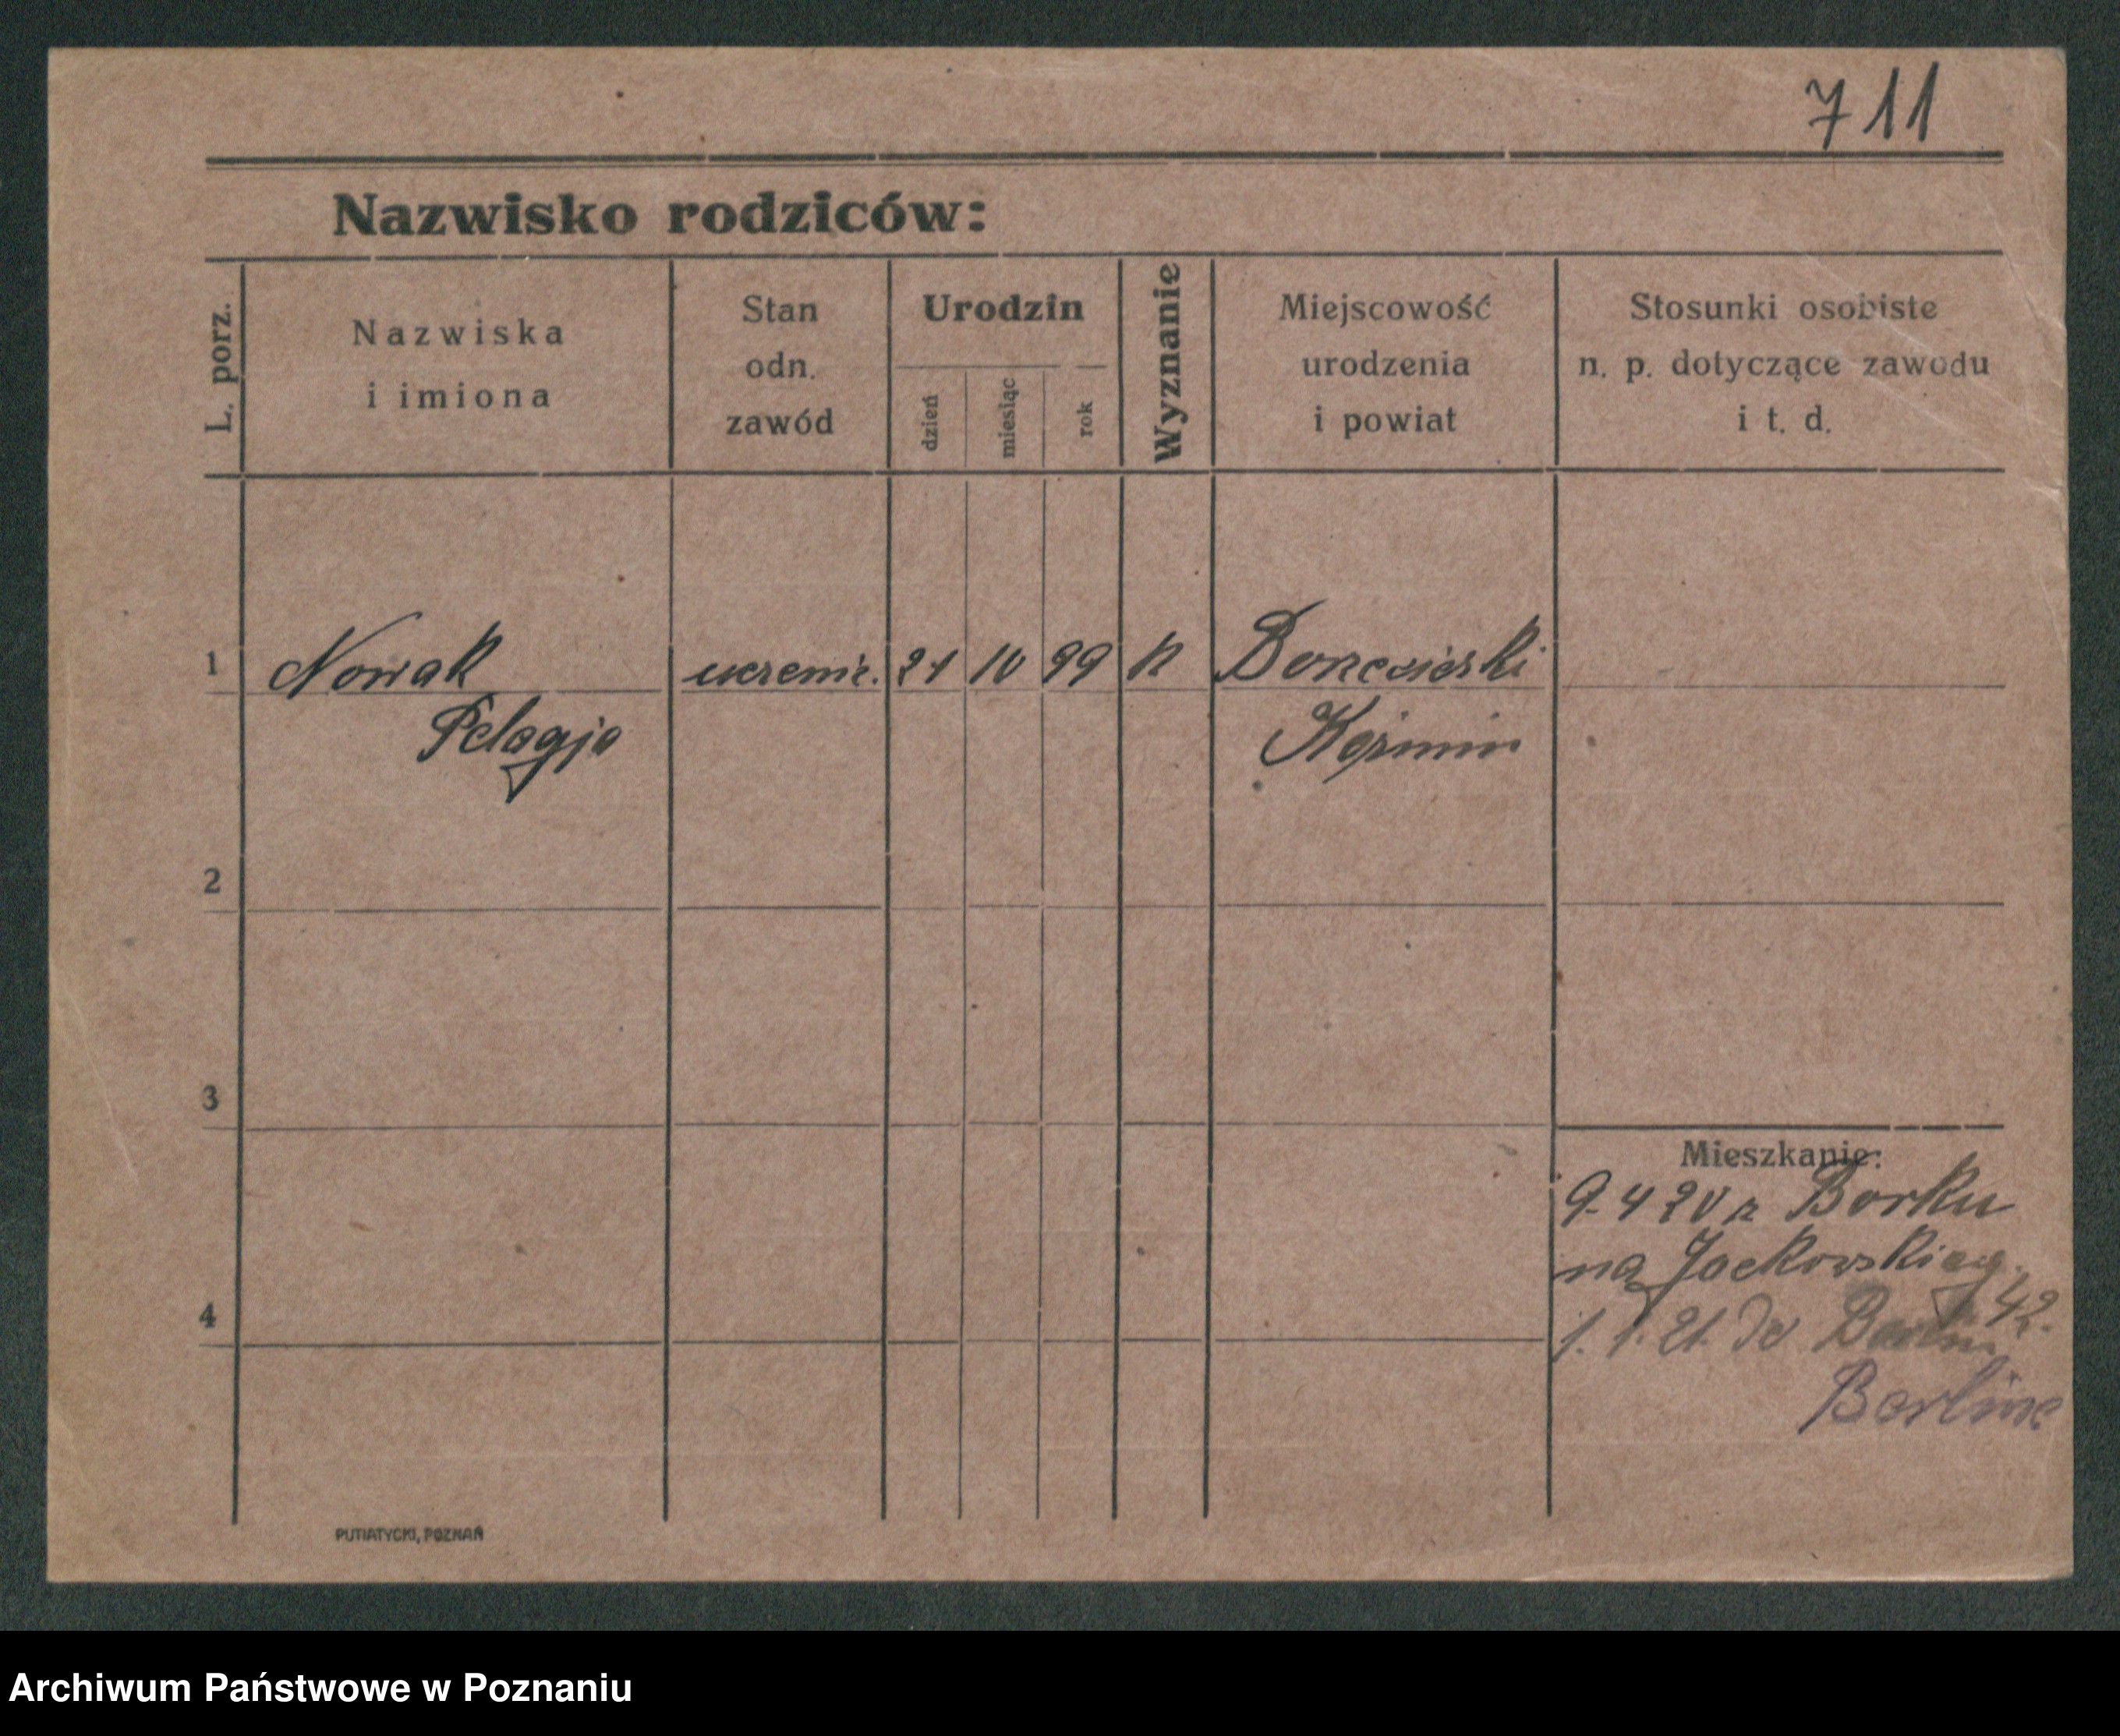 711
Nazwisko rodziców:
L. porz.
Nazwiska
i imiona
Stan
odn.
zawód
Urodzin
dzień
miesiąc
rok
Wyznanie
Miejscowość
urodzenia
i powiat
Stosunki osobiste
n. p. dotyczące zawodu
i t. d.
1
Nowak
21
99
k
Pelagja
Koźmin
2
3
4
Mieszkanie:
9.4 20 z Borku
na Jackowskieg.
42.
1. 1. 21. do
Berlina
PUTIATYCKI, POZNAŃ
Archiwum Państwowe w Poznaniu